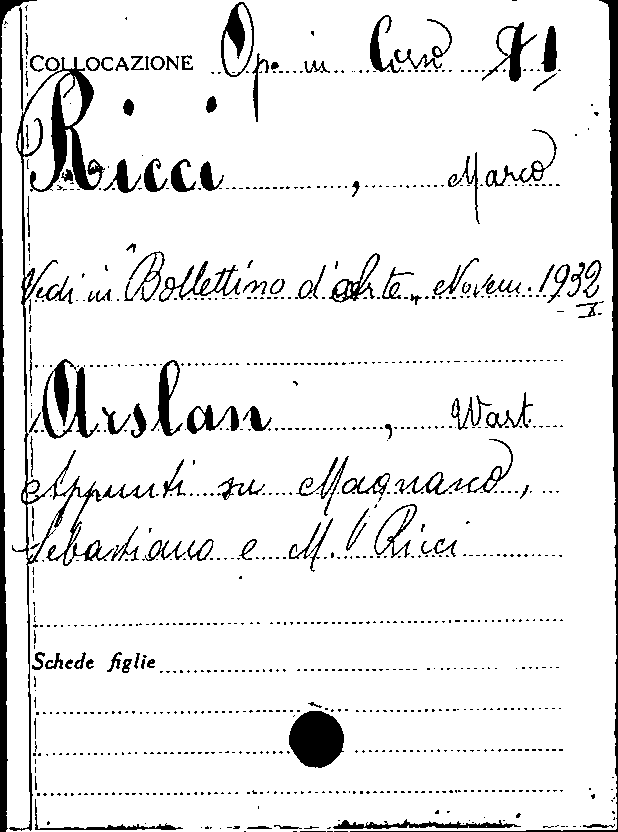 COLLOCAZIONE Op. in Corso 71
Ricci, Marco
Vedi in "Bollettino d'Arte" Novem. 1932
X.
Arslan, Wart
Appunti su Magnasco,
Sebastiano e M. Ricci
Schede figlie